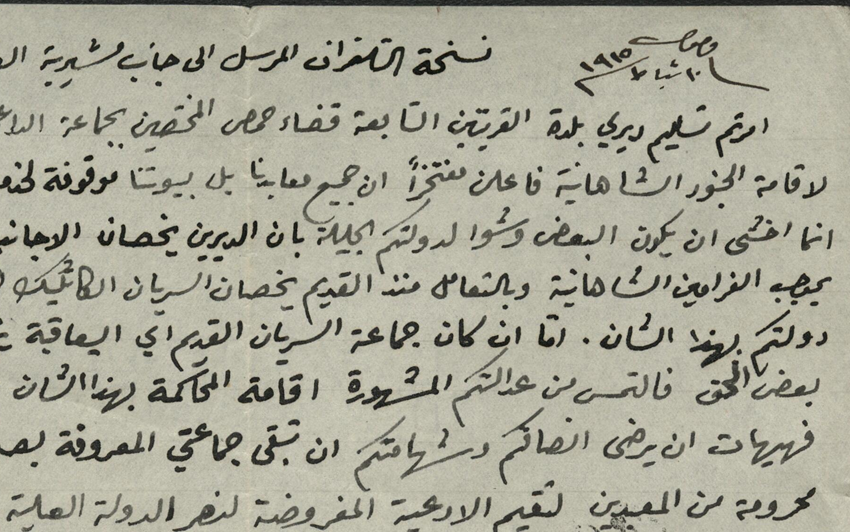 نسخة التلغراف المرسل الى جانب مشيرية
حمص
١٠ شباط ١٩١٥
امرتم تسليم ديري بلدة القريتين التابعة قضاء حمص المختصين بجماعة
لاقامة الجنود الشاهانية فاعلن مفتخرًا ان جميع معابدنا بل بيوتنا موقوفة
انما اخشى ان يكون البعض وشوا لدولتكم الجليلة بان الديرين يخصان الاجانب
بموجب الفرامين الشاهانية وبالتعامل منذ القديم يخصان السريان الكاثليك
دولتكم بهذا الشان . امّا ان كان جماعة السريان القديم اي اليعاقبة
بعض الحق فالتمس من عدالتكم المشهورة اقامة المحاكمة بهذا الشان
فهيهات ان يرضى انصافكم وشهامتكم ان تبقى جماعتي المعروفة
محرومة من المعبدين لتقيم الادعية المفروضة لنصر الدولة العلية